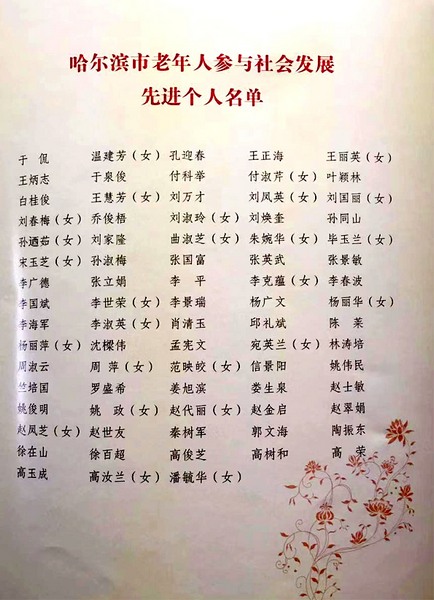 哈尔滨市老年人参与社会发展
先进个人名单
于 侃 温建芳（女） 孔迎春 王正海 王丽英（女）
王炳志 于泉俊 付科举 付淑芹（女） 叶颖林
白桂俊 王慧芳（女） 刘万才 刘凤英（女） 刘国丽（女）
刘春梅（女） 乔俊梧 刘淑玲（女） 刘焕奎 孙同山
孙迺茹（女） 刘家隆 曲淑芝（女） 朱婉华（女） 毕玉兰（女）
宋玉芝（女） 孙淑梅 张国富 张英武 张景敏
李广德 张立娟 李 平 李克蕴（女） 李春波
李国斌 李世荣（女） 李景瑞 杨广文 杨丽华（女）
李海军 李淑英（女） 肖清玉 邱礼斌 陈 莱
杨丽萍（女） 沈樑伟 孟宪文 宛英兰（女） 林涛培
周淑云 周 萍（女） 范映皎（女） 信景阳 姚伟民
竺培国 罗盛希 姜旭滨 娄生泉 赵士敏
姚俊明 姚 政（女） 赵代丽（女） 赵金启 赵翠娟
赵凤芝（女） 赵世友 秦树军 郭文海 陶振东
徐在山 徐百超 高俊芝 高树和 高 荣
高玉成 高汝兰（女） 潘毓华（女）